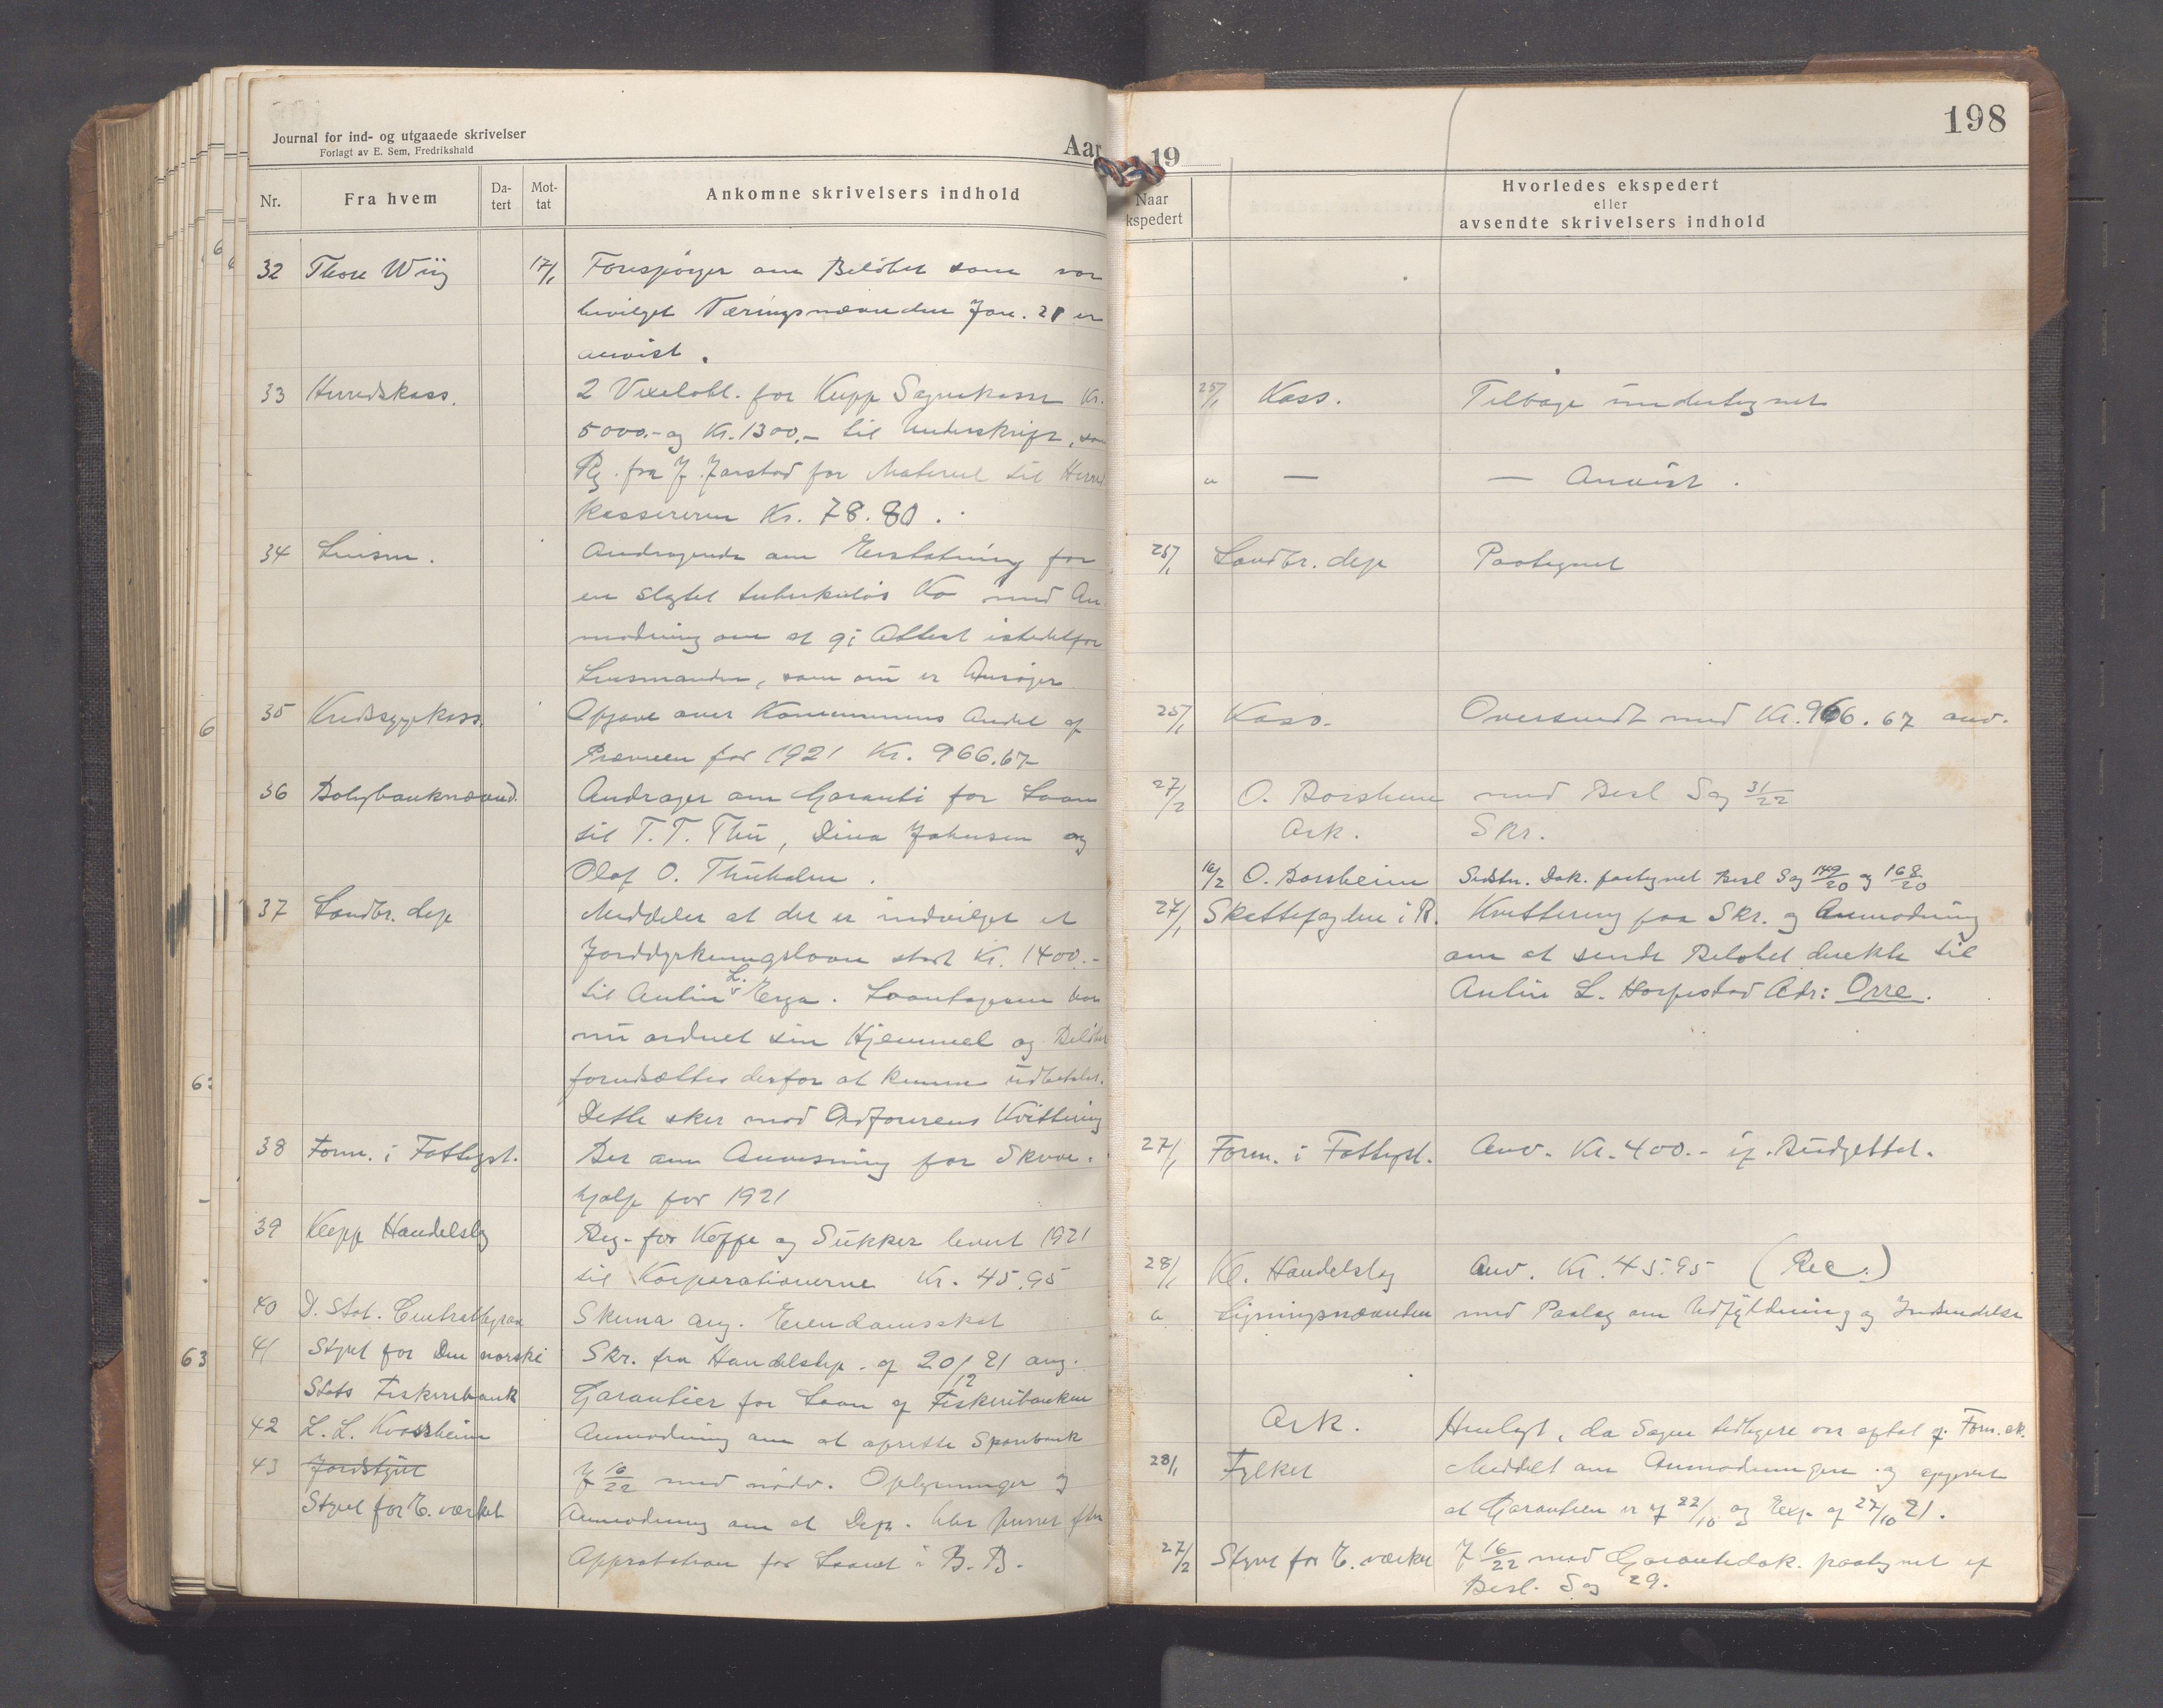 Journal for ind- og utgaaede skrivelser
Forlagt av E. Sem, Fredrikshald
Aar
Nr.
Fra hvem
Da-
tert
Mot-
tat
Ankomne skrivelsers indhold
32 Thore Wiig 17/1 Forespörger om Belöbet som var
bevilget Næringsnævnden Jan. 21 er
anvist.
33 Herredskass. 2 Vexelobl. for Klepp Sognekasse Kr.
5000.- og Kr. 1300.- til Underskrift, som
Rg. fra J. Jarstad for Materiel til Herreds
kassereren Kr. 78.80.
34 Lensm. Andragende om Erstatning for
en slagtet tuberkulös Ko med An
modning om at gi Attest istedetfor
Lensmanden, som nu er Ansöger
35 Kredssygekass. Opgave over Kommunens Andel af
Præmien for 1921 Kr. 966.67
36 Boligbanknævnd. Andrager om Garanti for Laan
til T. T. Thu, Dina Johnsen og
Olaf O. Thuholm.
37 Landbr. dep Meddeler at der er indvilget et
Jorddyrkningslaan stort Kr. 1400.-
til Anlin L. Erga. Laantageren har
nu ordnet sin Hjemmel og Belöbet
forudsættes derfor at kunne udbetales.
Dette sker mod Ordförerens Kvittering
38 Form. i Fattigst. Ber om Anvisning for Skove.
hjælp for 1921
39 Klepp Handelslag Reg. for Kaffe og Sukker levert 1921
til Korporationerne Kr. 45.95
40 D. Stat. Centralbyraa Skema ang. Eiendomsskat
41 Styret for Den norske Skr. fra Handelsdep. af 20/12 21 ang.
Stats Fiskeribank Garantier for Laan af Fiskeribanken
42 L. L. Kvassheim Anmodning om at oprette Sparebank
43 Jordstyret J 16/22 med nödv. Oplysninger og
Styret for E. værket Anmodning om at Dep. blir purret efter
Approbation for Laanet i B. B.
19
198
Naar
kspedert
Hvorledes ekspedert
eller
avsendte skrivelsers indhold
25/1 Kass. Tilbage undertegnet
" — — Anvist.
25/1 Landbr. dep Paategnet
25/1 Kass. Oversendt med Kr. 966.67 anv.
27/2 O. Borsheim med Besl Sag 31/22
Ark. Skr.
16/2 O. Borsheim Sidstn. Dok. paategnet Besl Sag 149/20 og 168/20
27/1 Skattefogden i R. Kvittering paa Skr. og Anmodning
om at sende Belöbet direkte til
Anlin L. Horpestad Adr: Orre.
27/1 Form. i Fattigst. Anv. Kr. 400.- if. Budgettet.
28/1 Kl. Handelslag Anv. Kr. 45.95 (Rec.)
" Ligningsnævnden med Paalæg om Udfyldning og Indsendelse
Ark. Henlagt, da Sagen tidligere var avstat af Form.sk.
28/1 Fylket Meddelt om Anmodningen og opgivet
at Garantien er af 22/10 og Exp. af 27/10 21.
27/2 Styret for E. værket J 16/22 med Garantidok. paategnet if
Besl. Sag 29.